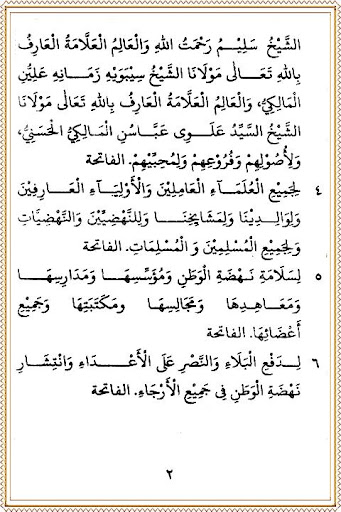 الشَّيْخُ سَلِيْمُ رَحْمَتُ اللهِ وَالْعَالِمُ الْعَلَّامَةُ الْعَارِفُ
بِاللهِ تَعَالٰى مَوْلَانَا الشَّيْخُ سِيْبَوَيْهِ زَمَانِهِ عَلِيُّنِ
الْمَالِكِيُّ، وَالْعَالِمُ الْعَلَّامَةُ الْعَارِفُ بِاللهِ تَعَالٰى مَوْلَانَا
الشَّيْخُ السَّيِّدُ عَلَوِى عَبَّاسُنِ الْمَالِكِيُّ الْحَسَنِيُّ،
وَلِأُصُوْلِهِمْ وَفُرُوْعِهِمْ وَلِمُحِبِّيْهِمْ. الفاتحة
٤ لِجَمِيْعِ الْعُلَمَاءِ الْعَامِلِيْنَ وَالْأَوْلِيَاءِ الْعَارِفِيْنَ
وَلِوَالِدِيْنَا وَلِمَشَايِخِنَا وَلِلنَّهْضِيِّيْنَ وَالنَّهْضِيَّاتِ
وَلِجَمِيْعِ الْمُسْلِمِيْنَ وَ الْمُسْلِمَاتِ. الفاتحة
٥ لِسَلَامَةِ نَهْضَةِ الْوَطَنِ وَمُؤَسِّسِهَا وَمَدَارِسِهَا
وَمَعَاهِدِهَا وَمَجَالِسِهَا ومَكْتَبَتِهَا وَجَمِيْعِ
أَعْضَائِهَا. الفاتحة
٦ لِدَفْعِ الْبَلَاءِ وَالنَّصْرِ عَلَى الْأَعْدَاءِ وَانْتِشَارِ
نَهْضَةِ الْوَطَنِ فِى جَمِيْعِ الْأَرْجَاءِ. الفاتحة
٢